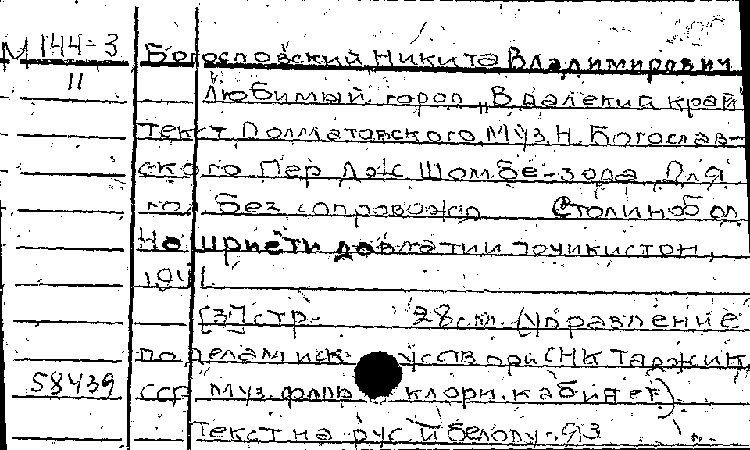 М 144-3 Богословский Никита Владимирович
11 Любимый город "В далекий край
текст Долматовского. Муз. Н. Богослов-
ского Пер Дж Шомбе-зода Для
гол без сопровожд Столинобод
Нашриёти давлатии точикистон,
1941.
[3] стр. 28 см. (управление
по делам иск усств при СНК Таджик,
58439 сср муз. фоль клорн. кабинет)
Текст на рус и